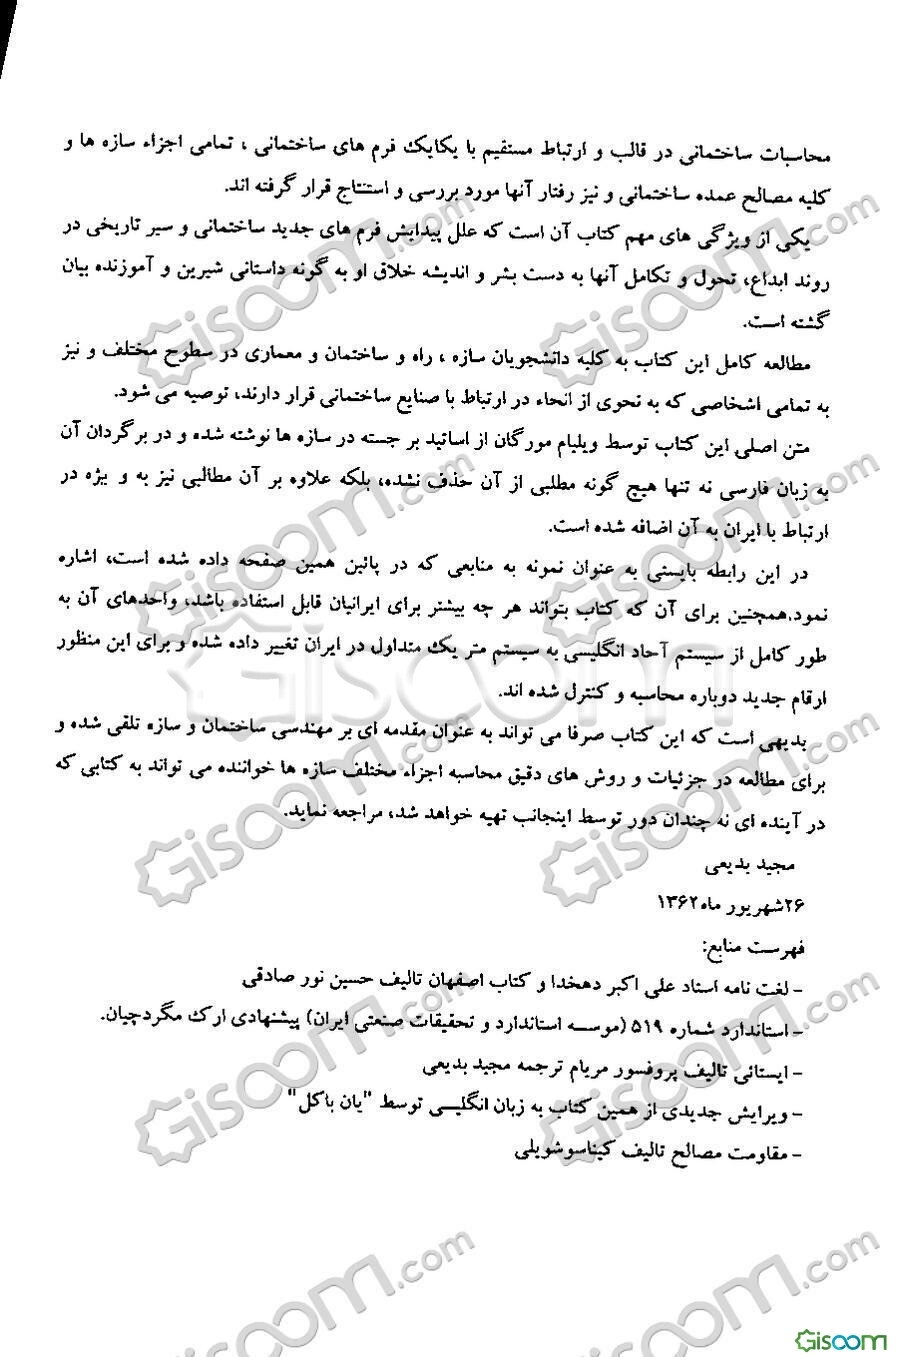 محاسبات ساختمانی در قالب و ارتباط مستقیم با یکایک فرم های ساختمانی ، تمامی اجزاء سازه ها و
کلیه مصالح عمده ساختمانی و نیز رفتار آنها مورد بررسی و استنتاج قرار گرفته اند.
یکی از ویژگی های مهم کتاب آن است که علل پیدایش فرم های جدید ساختمانی و سیر تاریخی در
روند ابداع، تحول و تکامل آنها به دست بشر و اندیشه خلاق او به گونه داستانی شیرین و آموزنده بیان
گشته است.
مطالعه کامل این کتاب به کلیه دانشجویان سازه ، راه و ساختمان و معماری در سطوح مختلف و نیز
به تمامی اشخاصی که به نحوی از انحاء در ارتباط با صنایع ساختمانی قرار دارند، توصیه می شود.
متن اصلی این کتاب توسط ویلیام مورگان از اساتید بر جسته در سازه ها نوشته شده و در برگردان آن
به زبان فارسی نه تنها هیچ گونه مطلبی از آن حذف نشده، بلکه علاوه بر آن مطالبی نیز به و یژه در
ارتباط با ایران به آن اضافه شده است.
در این رابطه بایستی به عنوان نمونه به منابعی که در پائین همین صفحه داده شده است، اشاره
نمود.همچنین برای آن که کتاب بتواند هر چه بیشتر برای ایرانیان قابل استفاده باشد، واحدهای آن به
طور کامل از سیستم آحاد انگلیسی به سیستم متر یک متداول در ایران تغییر داده شده و برای این منظور
ارقام جدید دوباره محاسبه و کنترل شده اند.
بدیهی است که این کتاب صرفا می تواند به عنوان مقدمه ای بر مهندسی ساختمان و سازه تلقی شده و
برای مطالعه در جزئیات و روش های دقیق محاسبه اجزاء مختلف سازه ها خواننده می تواند به کتابی که
در آینده ای نه چندان دور توسط اینجانب تهیه خواهد شد، مراجعه نماید.
مجید بدیعی
۲۶شهریور ماه۱۳۶۲
فهرست منابع:
– لغت نامه استاد علی اکبر دهخدا و کتاب اصفهان تالیف حسین نور صادقی
– استاندارد شماره ۵۱۹ (موسسه استاندارد و تحقیقات صنعتی ایران) پیشنهادی ارک مگردچیان.
– ایستائی تالیف پروفسور مریام ترجمه مجید بدیعی
– ویرایش جدیدی از همین کتاب به زبان انگلیسی توسط "یان باکل"
– مقاومت مصالح تالیف کیناسوشویلی
Giscom